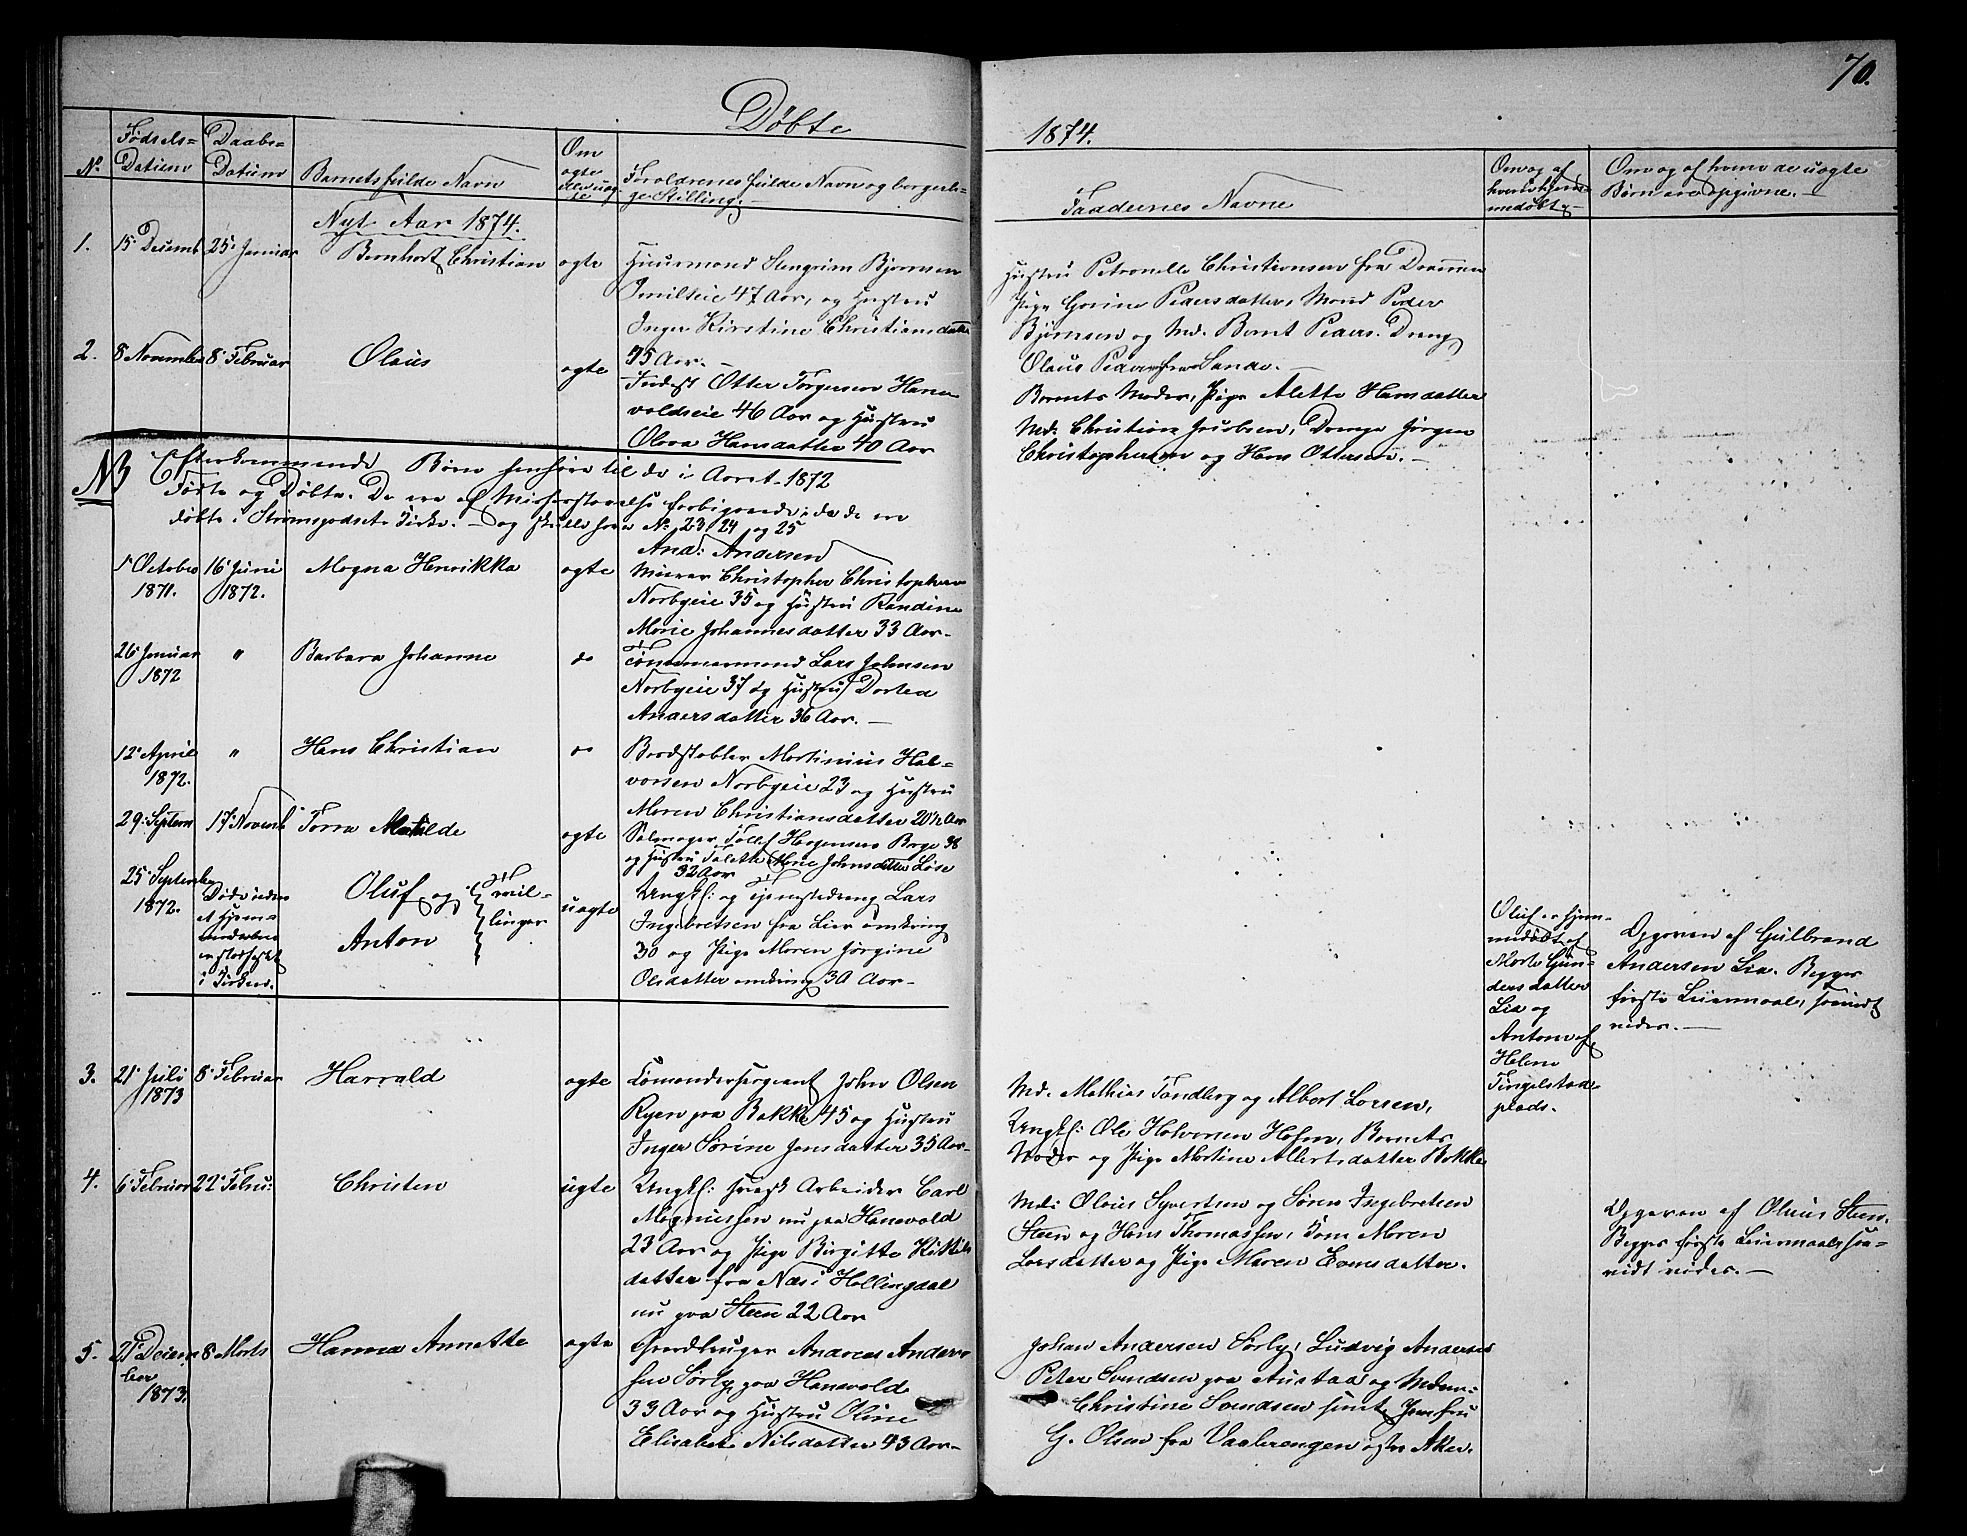 70.
Døbte
1874.
No
Fødsels-
Datum
Daabs-
Datum
Barnets fulde Navn
Om
ægte
eller uæg-
te
Forældrenes fulde Navn og borgerli-
ge Stilling.
Faddernes Navne
Om og af
hvem hjem-
medøbt
Om og af hvem de uægte
Børn ere opgivne.
Nyt Aar 1874.
1.
15 Decemb
25 Januar
Bernhart Christian
ægte
Huusmand Stengrim Bjørnsen
47 Aar, og Hustru
Inger Kirstine Christiansdatter
45 Aar.
Hustru Petronelle Christiansen fra Drammen
Pige Gorine Pedersdatter, Mænd Peder
Bjørnsen og Md. Bernt Peders. Dreng
Olaus Peders fra Sande.
2.
8 November
8 Februar
Olaus
ægte
Inderst Otter Torgersen Hane-
voldseie 46 Aar og Hustru
Olava Hansdatter 40 Aar
Barnets Moder, Pige Alette Hansdatter
Md. Christian Jacobsen, Drenge Jørgen
Christophersen og Hans Ottersen.
NB Efterkommende Børn henføres til de i Aaret 1872
Fødte og Døbte. De ere af Misforstaaelse forbigaaede, da de ere
døbte i Strømsgodset Kirke. og skulle have No 23 24 og 25
And: Andersen
1 October
1871.
16 Juni
1872.
Magna Henrikka
ægte
Murer Christopher Christophersen
Norbyeie 35 og Hustru Randine
Marie Johannesdatter 33 Aar
26 Januar
1872
"
Barbara Johanne
do
Tømmermand Lars Johnsen
Norbyeie 37 og Hustru Dorthea
Andersdatter 36 Aar.
12 April
1872.
"
Hans Christian
do
Bordstabler Martinius Hal-
vorsen Norbyeie 23 og Hustru
Maren Christiansdatter 20½ Aar
29 Septem
17 Novemb
Tora Matilde
ægte
Salmager Tollef Horgensen Berge 38
og Hustru Marie Johnsdatter
32 Aar
25 September
1872.
Døde
Oluf og
Anton
Tvil-
linger
uægte
Ungkl: og Tjenestedreng Lars
Ingebretsen fra Lier omkring
30 og Pige Maren Jørgine
Olsdatter omkring 30 Aar
Oluf er hjem-
medøbt af
Marte Gun-
dersdatter
Lia og
Anton af
Helene
Tingelstad-
plads.
Opgiven af Gulbrand
Andersen Lia. Begges
første Leiermaal, saavidt
vides.
3.
21 Juli
1873
8 Februar
Harrald
ægte
Comandersergeant John Olsen
Ryen paa Bakke 45 og Hustru
Inger Sørine Jonsdatter 35 Aar
Md. Mathias Tandberg og Albert Larsen,
Ungkl: Ole Halvorsen Holm, Barnets
Moder og Pige Martine Albertsdatter Bakke
4.
6 Februar
22 Febru:
Christen
uægte
Ungkl: svensk Arbeider Carl
Magnussen nu paa Hanevold
23 Aar og Pige Birgitte Kittils-
datter fra Næs i Hallingdal
nu paa Steen 22 Aar
Md: Olaus Syvertsen og Søren Ingebretsen
Steen og Hans Thomassen, Kone Maren
Larsdatter og Pige Maren Evensdatter.
Opgiven af Olaus Steen.
Begges første Leiermaal saa-
vidt vides.
5.
21 Decem
ber
1873.
8 Marts
Hanna Annette
ægte
Gaardbruger Andreas Ander-
sen Sørby paa Hanevold
33 Aar og Hustru Oline
Elisabet Nilsdatter 43 Aar
Johan Andersen Sørby, Ludvig Andersen
Peter Svendsen paa Austad og Madam
Christine Svendsen samt Jomfru
G. Olsen fra Vaalerengen østre Aker.